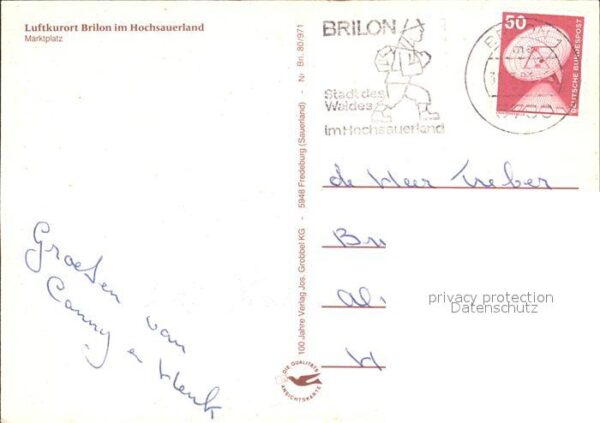 Luftkurort Brilon im Hochsauerland
Marktplatz
BRILON
Stadt des
Waldes
im Hochsauerland
BRILON 1
5790
50
DEUTSCHE BUNDESPOST
100 Jahre Verlag Jos. Grobbel KG - 5948 Fredeburg (Sauerland) - Nr. Bri. 80/971
de Heer Treber
Bru
Al
H
privacy protection
Datenschutz
Groeten van
Conny en Henk
DIE QUALITÄTS
ANSICHTSKARTE